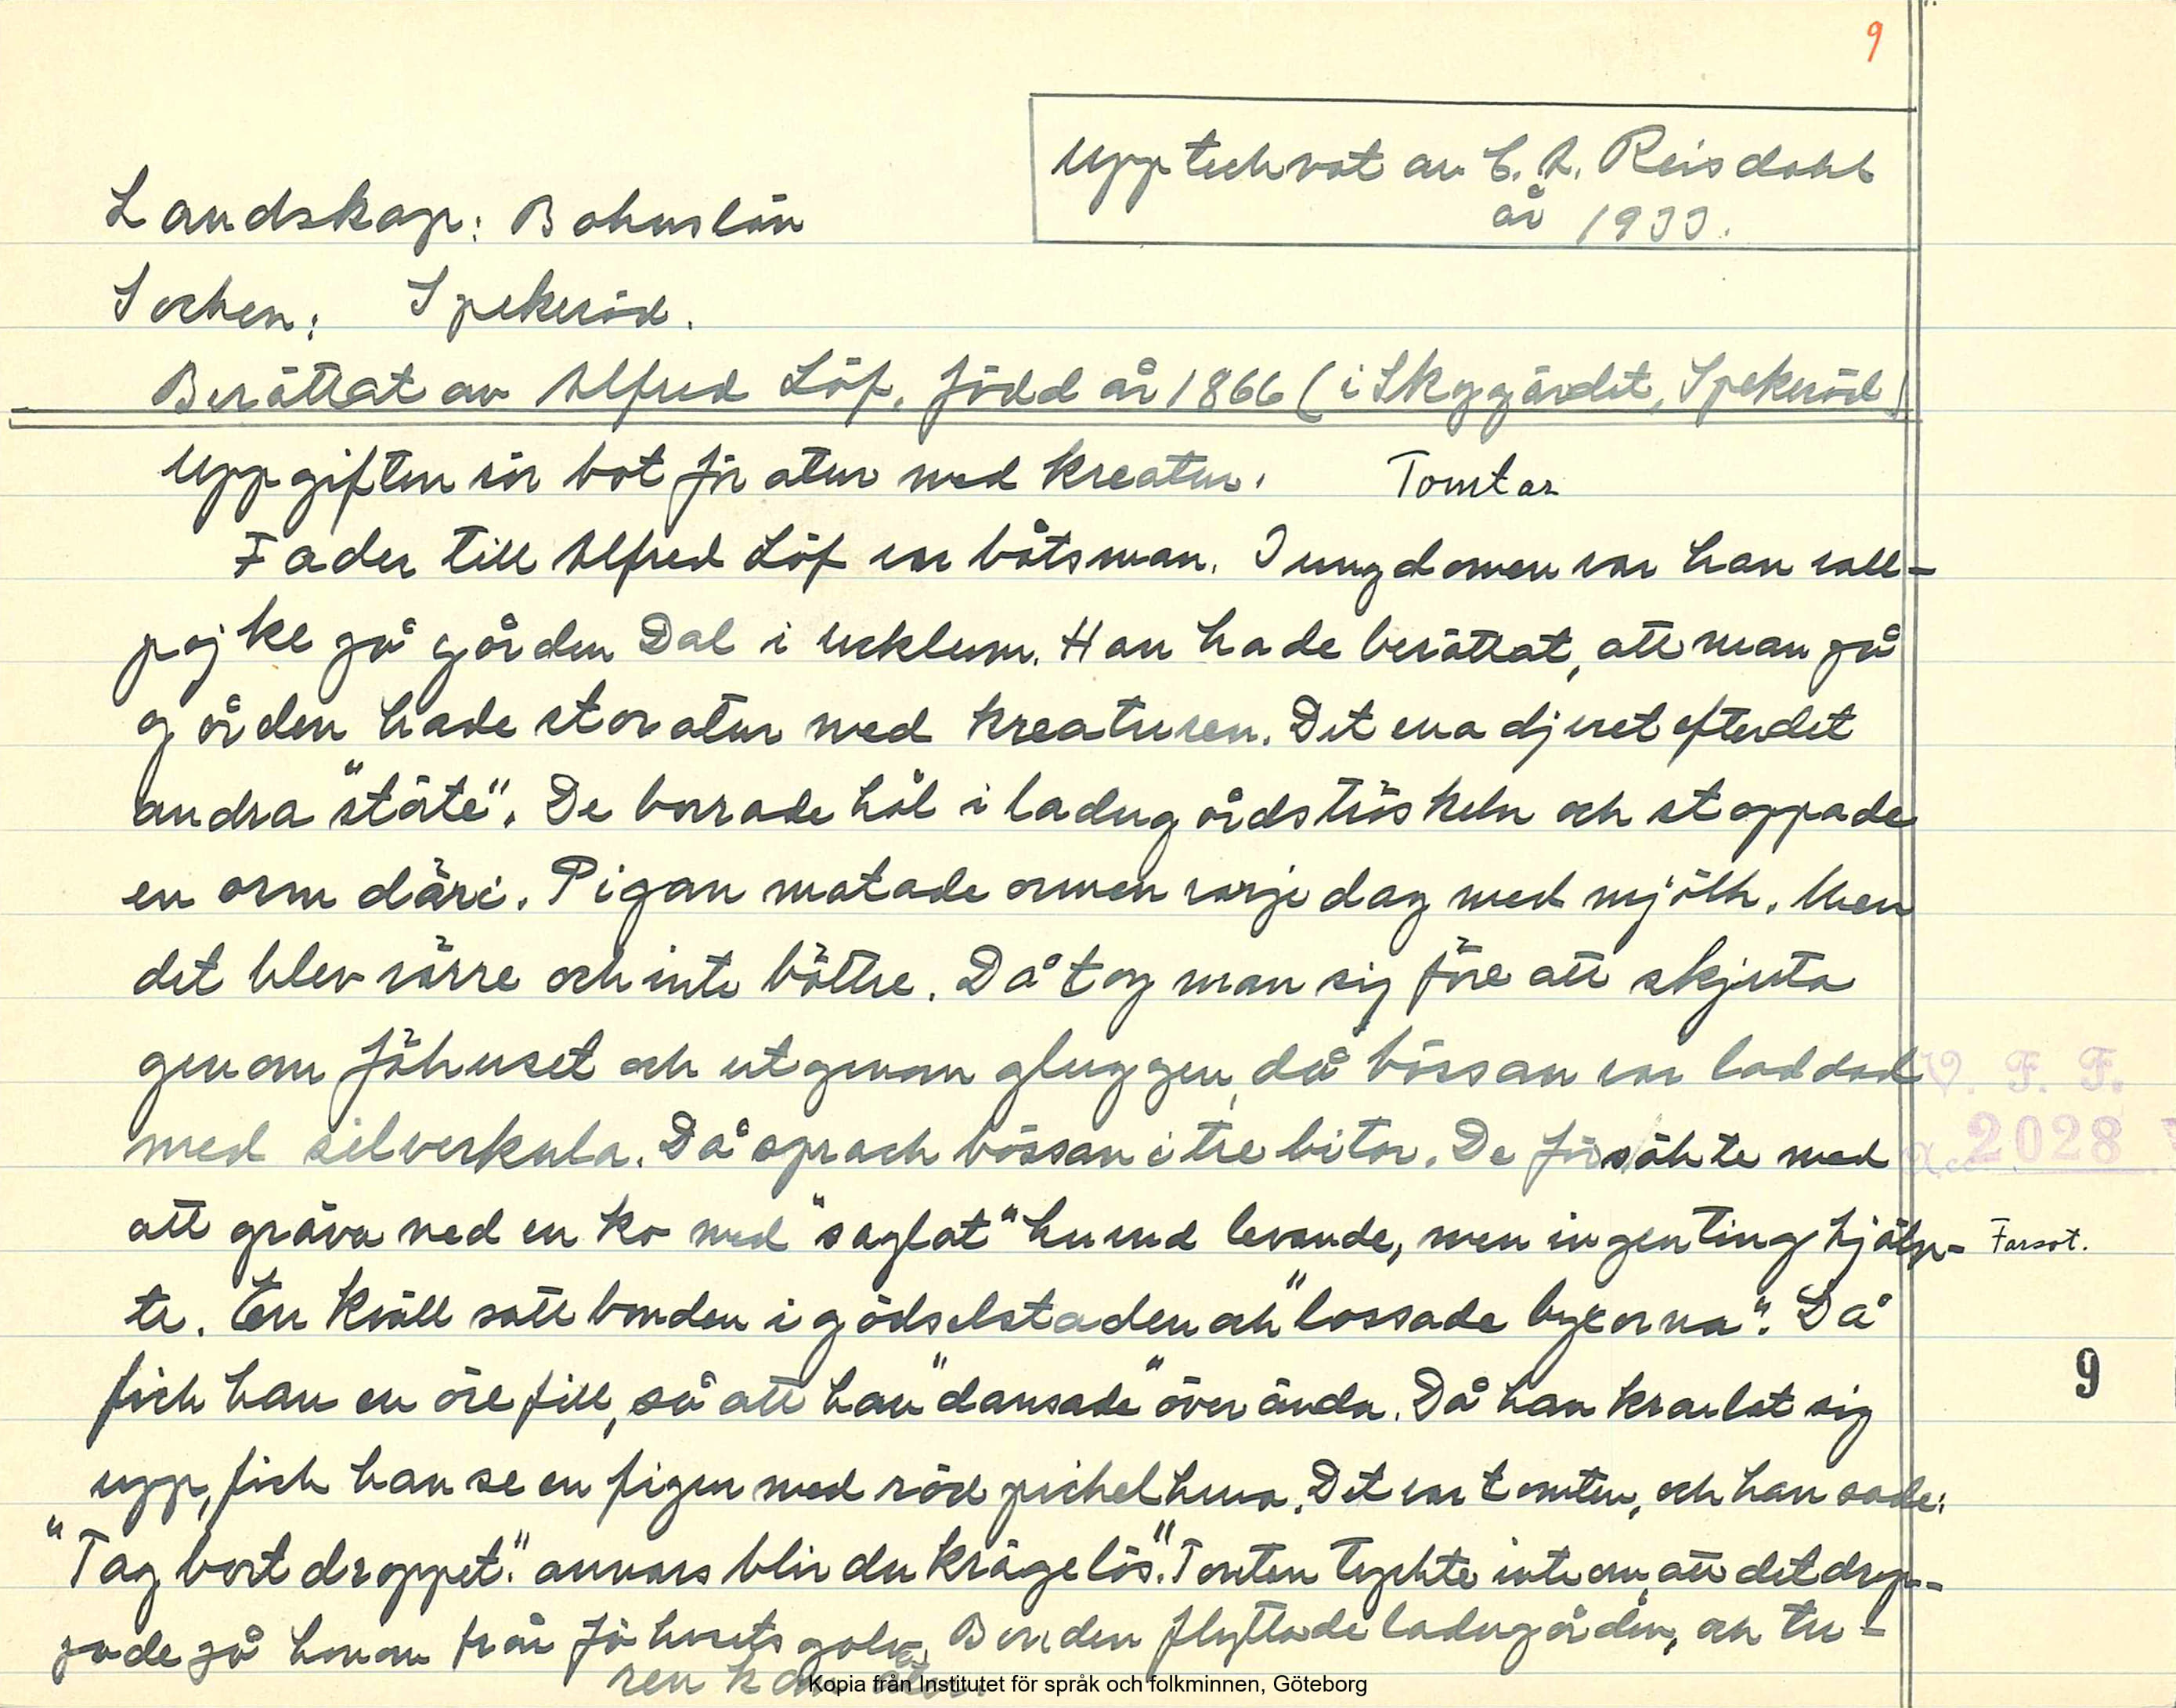 9
Upptecknat av C. A. Reisdahl
år 1933.
Landskap: Bohuslän
Socken: Spekeröd.
Berättat av Alfred Löf, född år 1866 (i Skoggärdet, Spekeröd)
Uppgiften rör bot för otur med kreatur. Tomtar
Fader till Alfred Löf var båtsman. I ungdomen var han vall-
pojke på gården Dal i Ucklum. Han hade berättat, att man på
gården hade stor otur med kreaturen. Det ena djuret efter det
andra "störte". De borrade hål i ladugårdströskeln och stoppade
en orm däri. Pigan matade ormen varje dag med mjölk. Men
det blev värre och inte bättre. Då tog man sig före att skjuta
genom fähuset och ut genom gluggen, då bössan var laddad
med silverkula. Då sprack bössan i tre bitar. De försökte med
att gräva ned en ko med "saglat" huvud levande, men ingenting hjälp-
te. En kväll satt bonden i gödselstaden och "lossade byxorna". Då
fick han en örefill, så att han "dansade" över ända. Då han kravlat sig
upp, fick han se en figur med röd pickelhuva. Det var tomten, och han sade:
"Tag bort droppet." annars blir du krågelös". Tomten tyckte inte om, att det drop-
pade på honom från fähusets golv. Bonden flyttade ladugården, och tu-
ren kom åter.
V. F. F.
Acc. 2028
Farsot.
9
Kopia från Institutet för språk och folkminnen, Göteborg